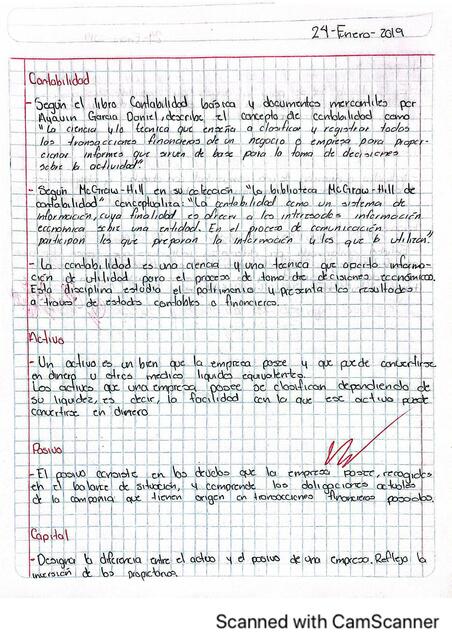 24-Enero-2019
Contabilidad
- Según el libro Contabilidad básica y documentos mercantiles por
Ayaviri García Daniel, describe el concepto de contabilidad como
"La ciencia y/o técnica que enseña a clasificar y registrar todas
las transacciones financieras de un negocio o empresa para propor-
cionar informes que sirven de base para la toma de decisiones
sobre la actividad".
- Según McGraw-Hill en su colección "La biblioteca McGraw-Hill de
contabilidad" conceptualiza: "La contabilidad como un sistema de
información, cuya finalidad es ofrecer a los interesados información
económica sobre una entidad. En el proceso de comunicación
participan los que preparan la información y los que la utilizan."
- La contabilidad es una ciencia y una técnica que aporta informa-
ción de utilidad para el proceso de toma de decisiones económicas.
Esta disciplina estudia el patrimonio y presenta los resultados
a través de estados contables o financieros.
Activo
- Un activo es un bien que la empresa posee y que puede convertirse
en dinero u otros medios líquidos equivalentes.
Los activos que una empresa posee se clasifican dependiendo de
su liquidez, es decir, la facilidad con la que ese activo puede
convertirse en dinero
Pasivo
- El pasivo consiste en las deudas que la empresa posee, recogidas
en el balance de situación, y comprende las obligaciones actuales
de la compañía que tienen origen en transacciones financieras pasadas.
Capital
- Designa la diferencia entre el activo y el pasivo de una empresa. Refleja la
inversión de los propietarios.
Scanned with CamScanner